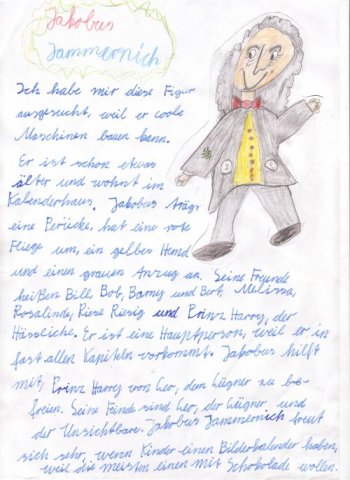 Jakobus
Jammernich
Ich habe mir diese Figur
ausgesucht, weil er coole
Maschinen bauen kann.
Er ist schon etwas
älter und wohnt im
Kalenderhaus. Jakobus trägt
eine Perücke, hat eine rote
Fliege um, ein gelbes Hemd
und einen grauen Anzug an. Seine Freunde
heißen Bill, Bob, Barny und Bert, Melissa,
Rosalinde, Riese Riesig und Prinz Harry, der
Hässliche. Er ist eine Hauptperson, weil er in
fast allen Kapiteln vorkommt. Jakobus hilft
mit, Prinz Harry von Leo, dem Lügner zu be-
freien. Seine Feinde sind Leo, der Lügner und
der Unsichtbare. Jakobus Jammernich freut
sich sehr, wenn Kinder einen Bilderkalender haben,
weil die meisten einen mit Schokolade wollen.